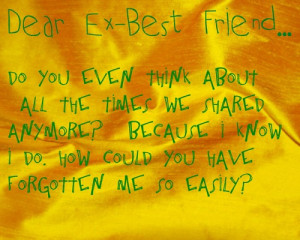 Dear Ex-Best Friend...
Do you even think about
all the times we shared
anymore? Because I know
I do. How could you have
forgotten me so easily?